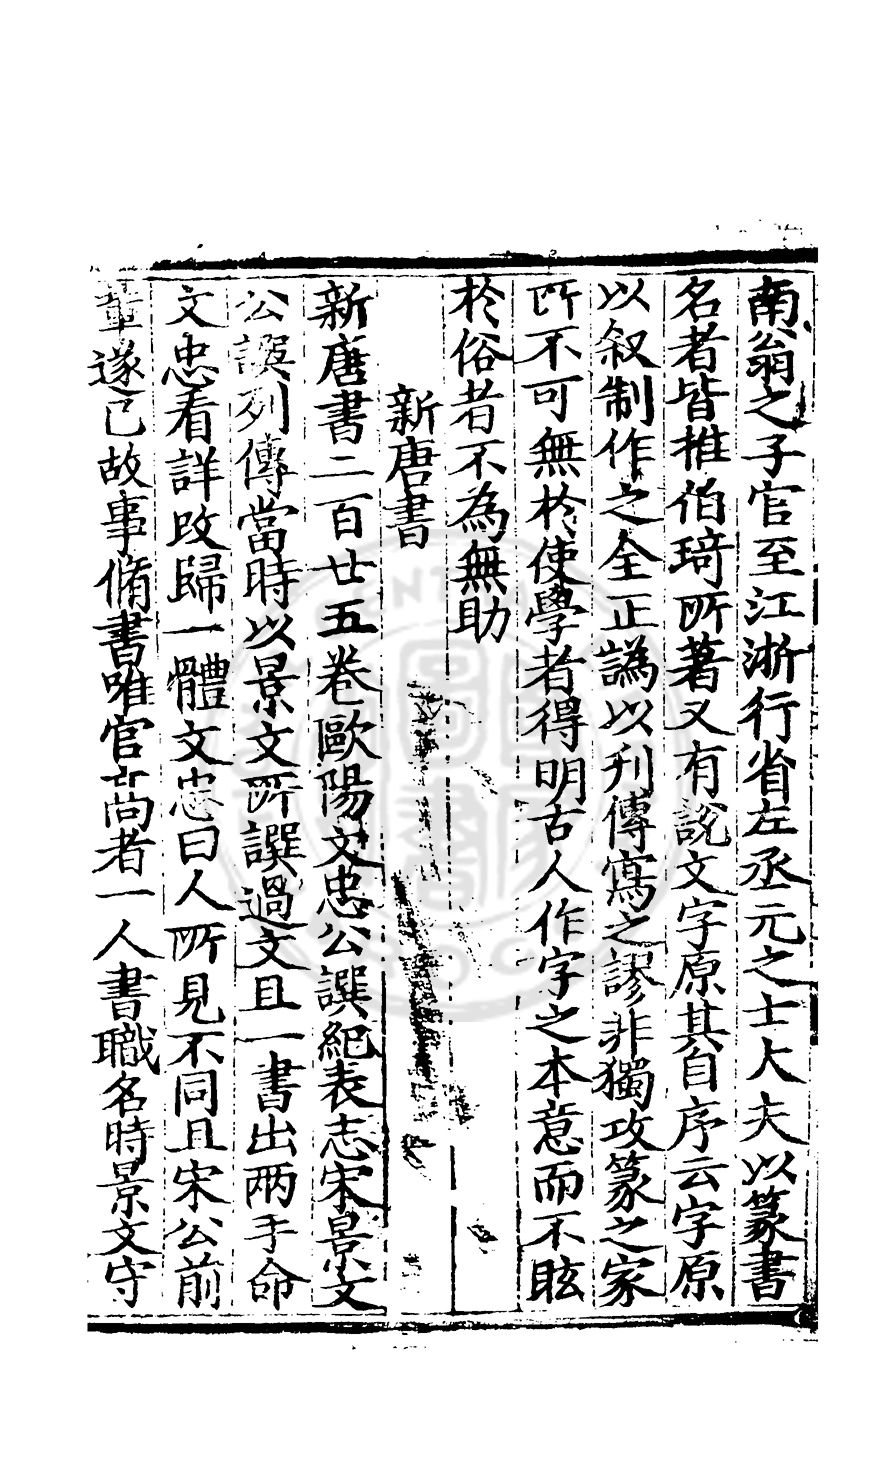 南翁之子官至江浙行省左丞元之士大夫以篆書
名者皆推伯琦所著又有說文字原其自序云字原
以叙制作之全正譌以刋傳寫之謬非獨攻篆之家
所不可無於使學者得明古人作字之本意而不眩
於俗者不為無助
新唐書
新唐書二百廿五卷歐陽文忠公譔紀表志宋景文
公譔列傳當時以景文所譔過文且一書出兩手命
文忠看詳改歸一體文忠曰人所見不同且宋公前
輩遂已故事脩書唯官高者一人書職名時景文守